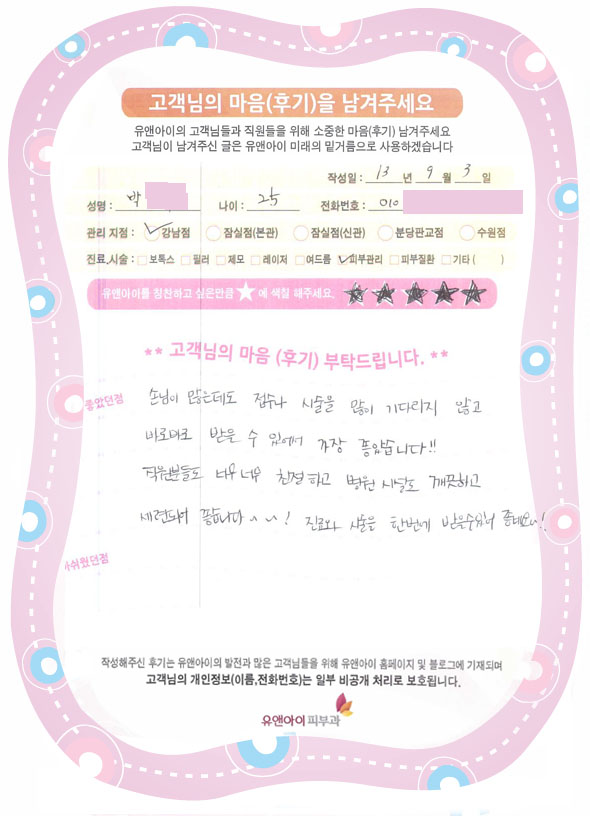 고객님의 마음(후기)을 남겨주세요
유앤아이의 고객님들과 직원들을 위해 소중한 마음(후기) 남겨주세요
고객님이 남겨주신 글은 유앤아이 미래의 밑거름으로 사용하겠습니다
작성일 : 13 년 9 월 3 일
성명 : 박 나이 : 25 전화번호 : 010
관리 지점 : 강남점 잠실점(본관) 잠실점(신관) 분당판교점 수원점
진료,시술 : 보톡스 필러 제모 레이저 여드름 피부관리 피부질환 기타 ( )
유앤아이를 칭찬하고 싶은만큼 ★에 색칠 해주세요.
** 고객님의 마음 (후기) 부탁드립니다. **
좋았던점
손님이 많은데도 접수나 시술을 많이 기다리지 않고
바로바로 받을 수 있어서 가장 좋았습니다!!
직원분들도 너무너무 친절하고 병원 시설도 깨끗하고
세련되어 좋습니다~~! 진료와 시술을 한번에 받을수있어 좋네요~!
아쉬웠던점
작성해주신 후기는 유앤아이의 발전과 많은 고객님들을 위해 유앤아이 홈페이지 및 블로그에 기재되며
고객님의 개인정보(이름,전화번호)는 일부 비공개 처리로 보호됩니다.
유앤아이피부과